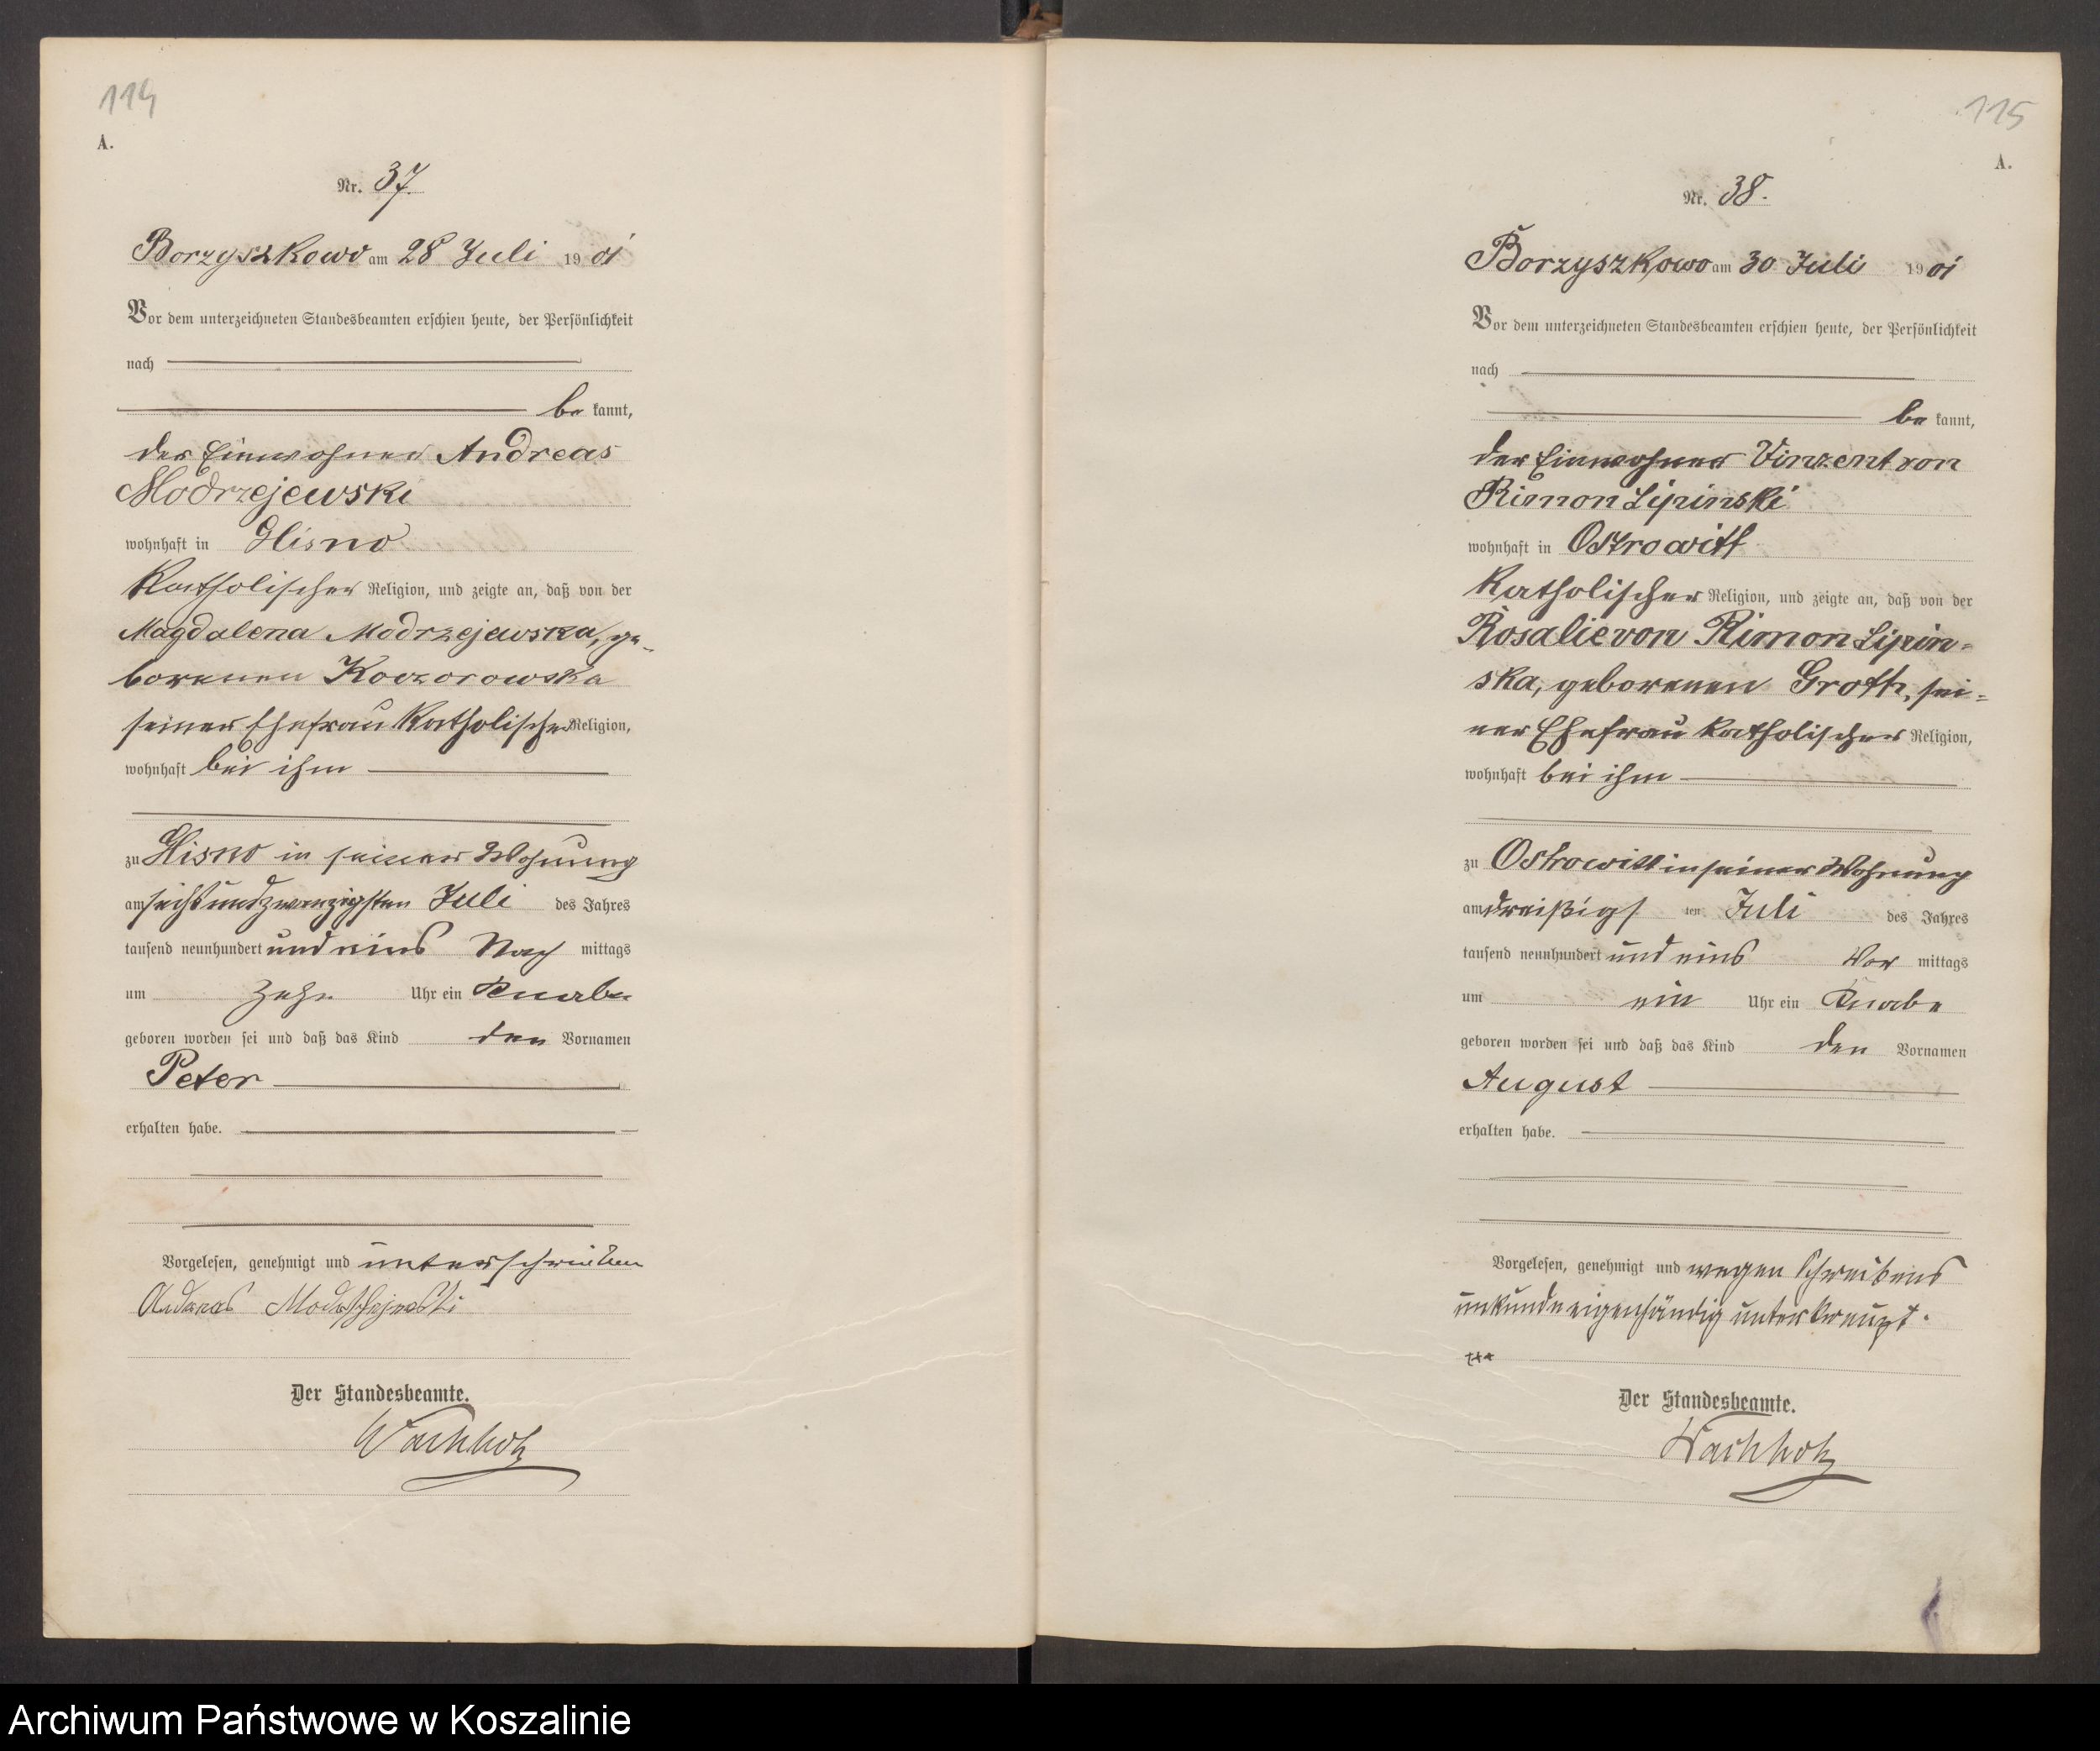 114
A.
Nr. 37.
Borzyszkowo am 28 Juli 19 01
Vor dem unterzeichneten Standesbeamten erschien heute, der Persönlichkeit
nach
be kannt,
der Einwohner Andreas
Modrzejewski
wohnhaft in Glisno
Katholischer Religion, und zeigte an, daß von der
Magdalena Modrzejewska, ge-
borenen Koczorowska
seiner Ehefrau Katholischer Religion,
wohnhaft bei ihm
zu Glisno in seiner Wohnung
am sechsundzwanzigsten Juli des Jahres
tausend neunhundert und eins Nach mittags
um zehn Uhr ein Knabe
geboren worden sei und daß das Kind den Vornamen
Peter
erhalten habe.
Vorgelesen, genehmigt und unterschrieben
Der Standesbeamte.
Wachholz
115
A.
Nr. 38.
Borzyszkowo am 30 Juli 19 01
Vor dem unterzeichneten Standesbeamten erschien heute, der Persönlichkeit
nach
be kannt,
der Einwohner Vinzent von
Rimon Lipinski
wohnhaft in Ostrowitt
Katholischer Religion, und zeigte an, daß von der
Rosalie von Rimon Lipin-
ska, geborenen Groth, sei-
ner Ehefrau katholischer Religion,
wohnhaft bei ihm
zu Ostrowitt in seiner Wohnung
am dreißigs ten Juli des Jahres
tausend neunhundert und eins Vor mittags
um ein Uhr ein Knabe
geboren worden sei und daß das Kind den Vornamen
August
erhalten habe.
Vorgelesen, genehmigt und wegen Schreibens
unkunde eigenhändig unterkreuzt.
+++
Der Standesbeamte.
Wachholz
Archiwum Państwowe w Koszalinie